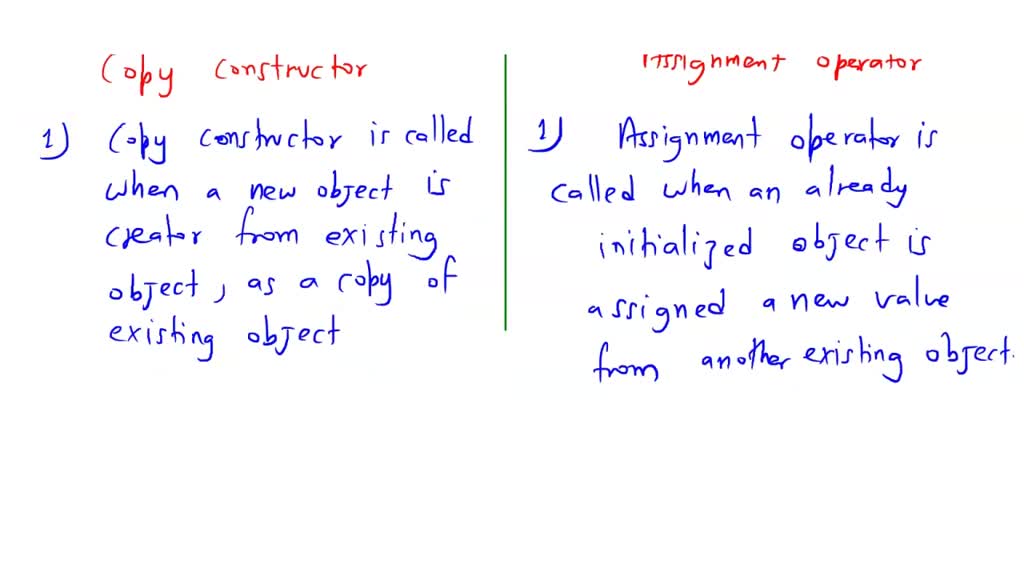 Copy constructor
1) Copy constructor is called
when a new object is
creator from existing
object, as a copy of
existing object
Assignment operator
1) Assignment operator is
called when an already
initialized object is
assigned a new value
from another existing object.